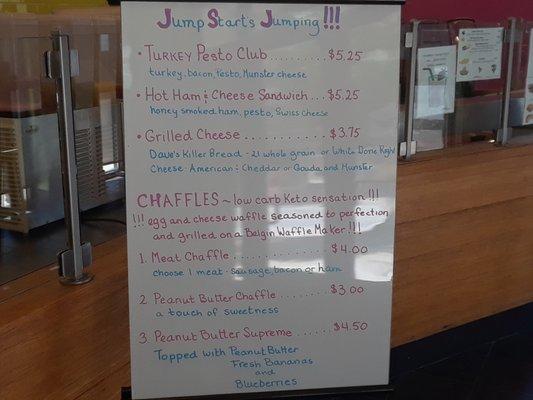 Jump Start's Jumping!!!
• Turkey Pesto Club .......... $5.25
turkey, bacon, Pesto, Munster cheese
• Hot Ham & Cheese Sandwich ... $5.25
honey smoked ham, pesto, Swiss Cheese
• Grilled Cheese ............ $3.75
Dave's Killer Bread - 21 whole grain or White Done Right
Cheese - American & Cheddar or Gouda, and Munster
CHAFFLES ~ low carb Keto sensation!!!
!!! egg and cheese waffle seasoned to perfection
and grilled on a Belgin Waffle Maker!!!
1. Meat Chaffle .............. $4.00
choose 1 meat - sausage, bacon or ham
2. Peanut Butter Chaffle ........ $3.00
a touch of sweetness
3. Peanut Butter Supreme ...... $4.50
Topped with Peanut Butter
Fresh Bananas
and
Blueberries